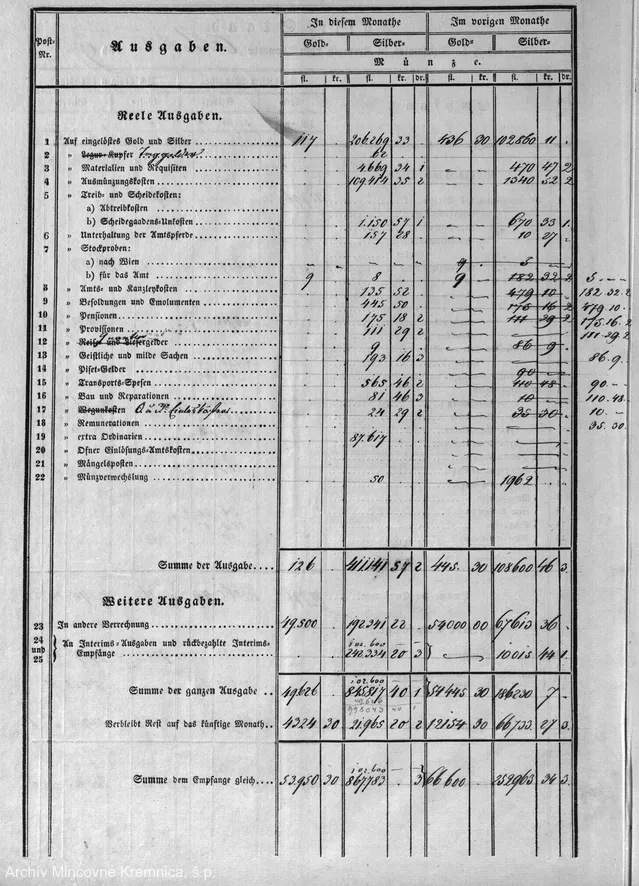 In diesem Monathe Im vorigen Monathe
Post-Nr. Ausgaben. Gold- Silber- Gold- Silber-
Münze.
fl. kr. fl. kr. dr. fl. kr. fl. kr. dr.
Reele Ausgaben.
1 Auf eingelöstes Gold und Silber 117 . 206.269 33 . 436 30 102860 11 .
2 " Legur-Kupfer 62
3 " Materialien und Requisiten 4669 34 1 470 47 2
4 " Ausmünzungskosten 109414 35 2 1340 52 2
5 " Treib- und Scheidekosten:
a) Abtreibkosten
b) Scheidegadens-Unkosten 1.150 57 1 670 33 1.
6 " Unterhaltung der Amtspferde 157 28 . 10 27 .
7 " Stockproben:
a) nach Wien 9 5
b) für das Amt 9 8 9 182 32 2 5 -
8 " Amts- und Kanzleykosten 135 52 479 10 182. 32. 2
9 " Besoldungen und Emolumenten 445 50 175 16 2 479 10.
10 " Pensionen 175 18 2 111 29 2 175. 16. 2
11 " Provisionen 111 29 2 111. 29. 2
12 " Reise- und Liefergelder 9 86 9
13 " Geistliche und milde Sachen 193 16 3 86. 9.
14 " Piset-Gelder 90
15 " Transports-Spesen 565 46 2 110 48 90 -
16 " Bau und Reparationen 81 46 3 10 110. 48.
17 " Wegunkosten 24 29 2 35 30 10. -
18 " Remunerationen 35. 30.
19 " extra Ordinarien 87.617
20 " Ofner Einlösungs-Amtskosten
21 " Mängelsposten
22 " Münzverwechslung 50 1962
Summe der Ausgabe 126 . 411141 57 2 445. 30 108600 46 3.
Weitere Ausgaben.
23 In andere Verrechnung 49.500 192341 22 . 54000 00 67613 36
24 und 25 An Interims-Ausgaben und rückbezahlte Interims-Empfänge 102.600 242.334 20 3 10015 44 1
Summe der ganzen Ausgabe 49626 102.600 845817 40 1 54445 30 186230 7
Verbleibt Rest auf das künftige Monath 4324 30 21.965 20 2 12154 30 66733 27 3
Summe dem Empfange gleich 53.950 30 102.600 867783 3 66600 252963 34 3.
Archív Mincovne Kremnica, š.p.